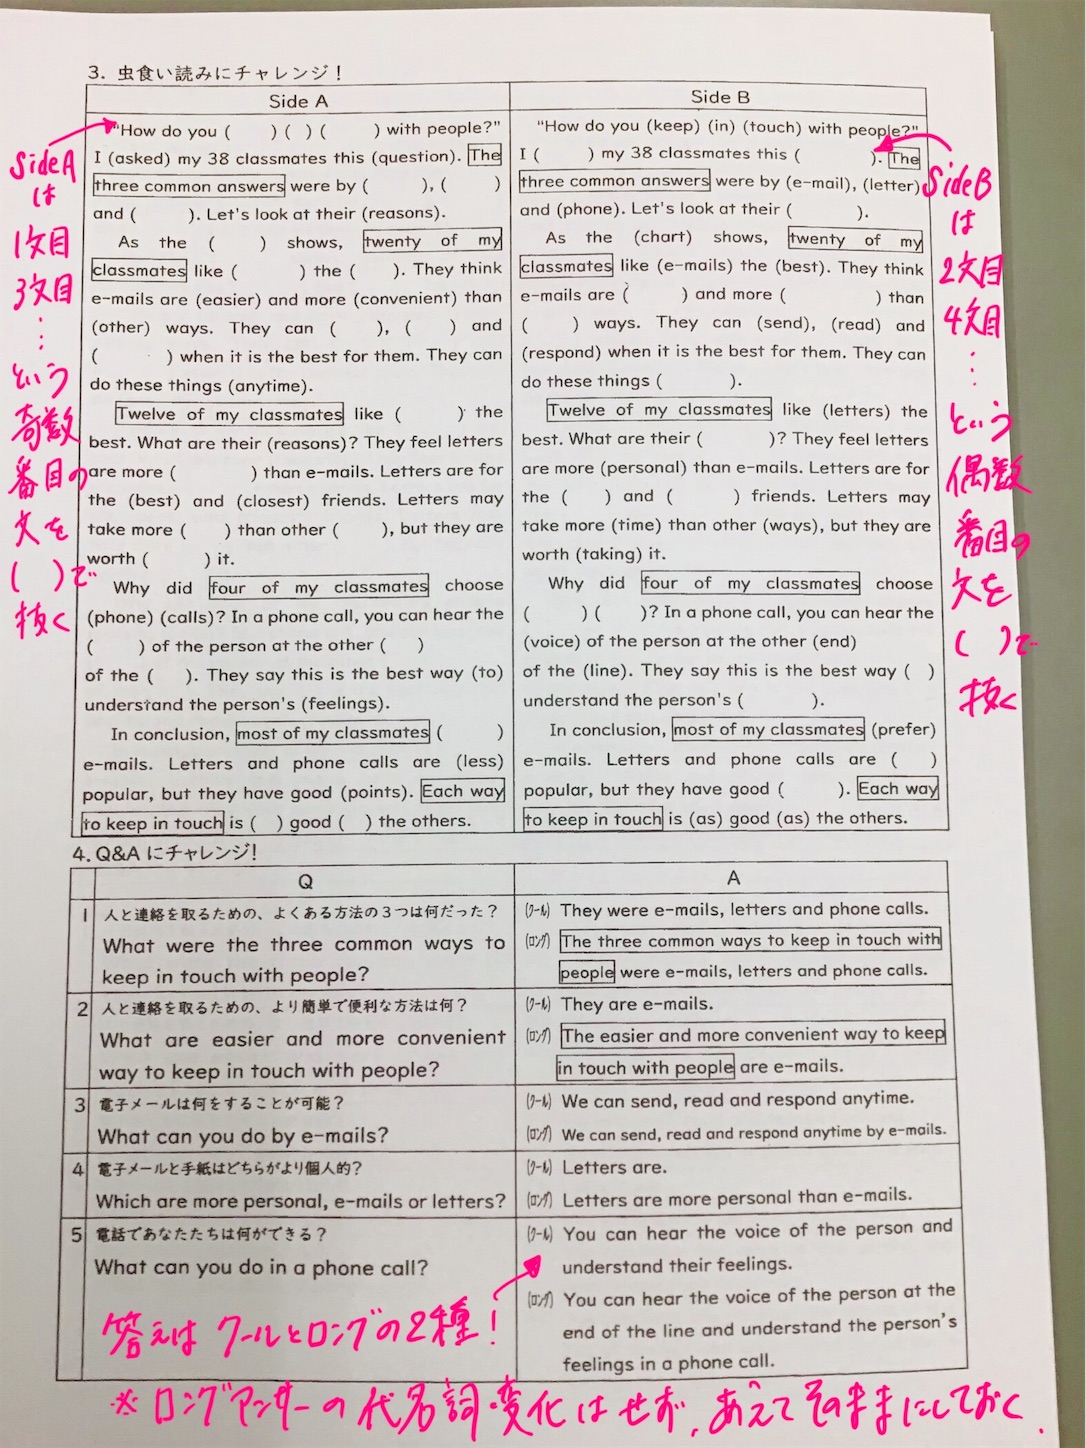 3. 虫食い読みにチャレンジ！
Side A
"How do you (　) (　) (　) with people?"
I (asked) my 38 classmates this (question). The
three common answers were by (　), (　)
and (　). Let's look at their (reasons).
As the (　) shows, twenty of my
classmates like (　) the (　). They think
e-mails are (easier) and more (convenient) than
(other) ways. They can (　), (　) and
(　) when it is the best for them. They can
do these things (anytime).
Twelve of my classmates like (　) the
best. What are their (reasons)? They feel letters
are more (　) than e-mails. Letters are for
the (best) and (closest) friends. Letters may
take more (　) than other (　), but they are
worth (　) it.
Why did four of my classmates choose
(phone) (calls)? In a phone call, you can hear the
(　) of the person at the other (　)
of the (　). They say this is the best way (to)
understand the person's (feelings).
In conclusion, most of my classmates (　)
e-mails. Letters and phone calls are (less)
popular, but they have good (points). Each way
to keep in touch is (　) good (　) the others.
Side B
"How do you (keep) (in) (touch) with people?"
I (　) my 38 classmates this (　). The
three common answers were by (e-mail), (letter)
and (phone). Let's look at their (　).
As the (chart) shows, twenty of my
classmates like (e-mails) the (best). They think
e-mails are (　) and more (　) than
(　) ways. They can (send), (read) and
(respond) when it is the best for them. They can
do these things (　).
Twelve of my classmates like (letters) the
best. What are their (　)? They feel letters
are more (personal) than e-mails. Letters are for
the (　) and (　) friends. Letters may
take more (time) than other (ways), but they are
worth (taking) it.
Why did four of my classmates choose
(　) (　)? In a phone call, you can hear the
(voice) of the person at the other (end)
of the (line). They say this is the best way (　)
understand the person's (　).
In conclusion, most of my classmates (prefer)
e-mails. Letters and phone calls are (　)
popular, but they have good (　). Each way
to keep in touch is (as) good (as) the others.
SideA
は
1文目
3文目
⋮
という
奇数
番目の
文を
(　)で
抜く
SideB
は
2文目
4文目
⋮
という
偶数
番目の
文を
(　)で
抜く
4. Q&Aにチャレンジ！
Q
A
1 人と連絡を取るための、よくある方法の３つは何だった？
What were the three common ways to
keep in touch with people?
(ｸｰﾙ) They were e-mails, letters and phone calls.
(ﾛﾝｸﾞ) The three common ways to keep in touch with
people were e-mails, letters and phone calls.
2 人と連絡を取るための、より簡単で便利な方法は何？
What are easier and more convenient
way to keep in touch with people?
(ｸｰﾙ) They are e-mails.
(ﾛﾝｸﾞ) The easier and more convenient way to keep
in touch with people are e-mails.
3 電子メールは何をすることが可能？
What can you do by e-mails?
(ｸｰﾙ) We can send, read and respond anytime.
(ﾛﾝｸﾞ) We can send, read and respond anytime by e-mails.
4 電子メールと手紙はどちらがより個人的？
Which are more personal, e-mails or letters?
(ｸｰﾙ) Letters are.
(ﾛﾝｸﾞ) Letters are more personal than e-mails.
5 電話であなたたちは何ができる？
What can you do in a phone call?
(ｸｰﾙ) You can hear the voice of the person and
understand their feelings.
(ﾛﾝｸﾞ) You can hear the voice of the person at the
end of the line and understand the person's
feelings in a phone call.
答えはクールとロングの2種！
※ロングアンサーの代名詞・変化はせず、あえてそのままにしておく.